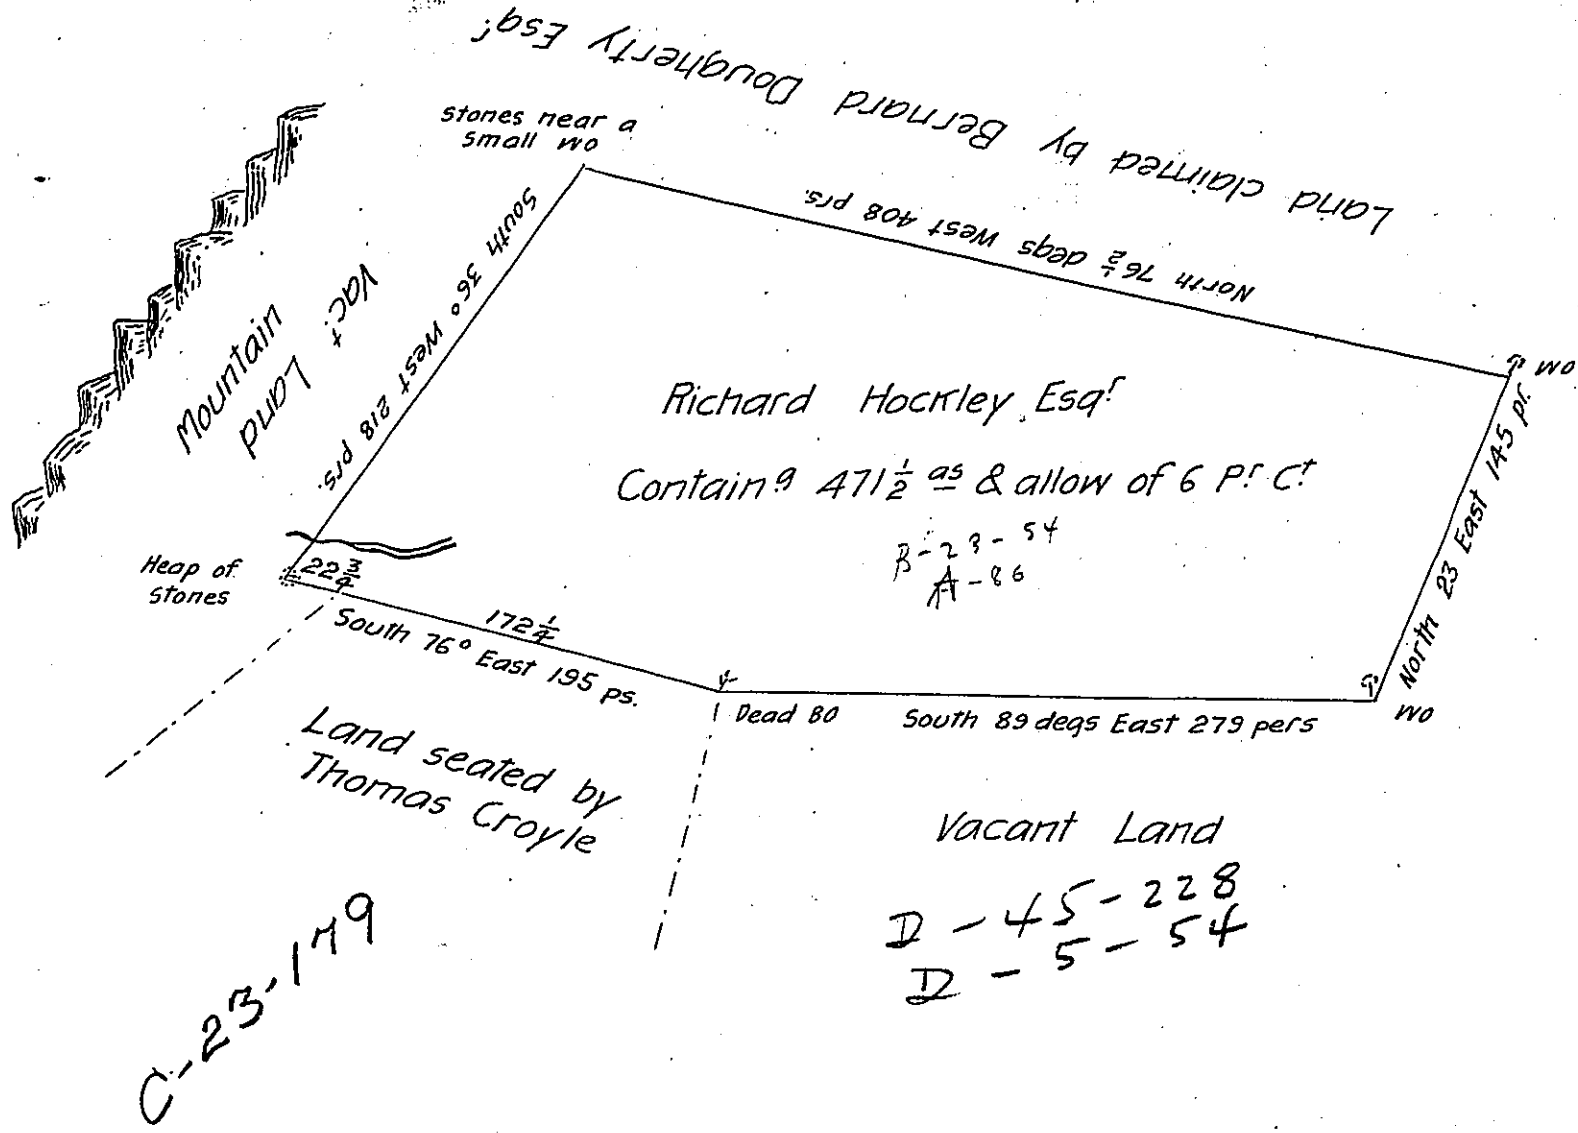 Land claimed by Bernard Dougherty Esqr.
stones near a
small wo
North 76½ degs West 408 prs.
South 36° West 218 prs.
Mountain
Vac.t Land
wo
North 23 East 145 pr.
Richard Hockley Esqr
Contain.g 471½ as & allow of 6 Pr. Ct.
B-23-54
A-86
Heap of
stones
22¾
172¼
South 76° East 195 ps.
Dead BO
South 89 degs East 279 pers
wo
Land seated by
Thomas Croyle
Vacant Land
D-45-228
D-5-54
C-23-179